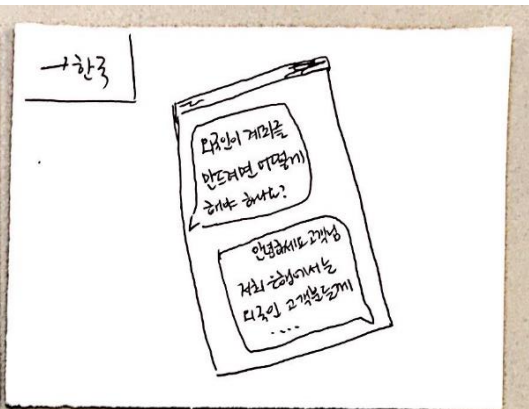 →한국
외국인이 계좌를
만드려면 어떻게
해야 하나요?
안녕하세요 고객님
저희 은행에서는
외국인 고객분들에게
....